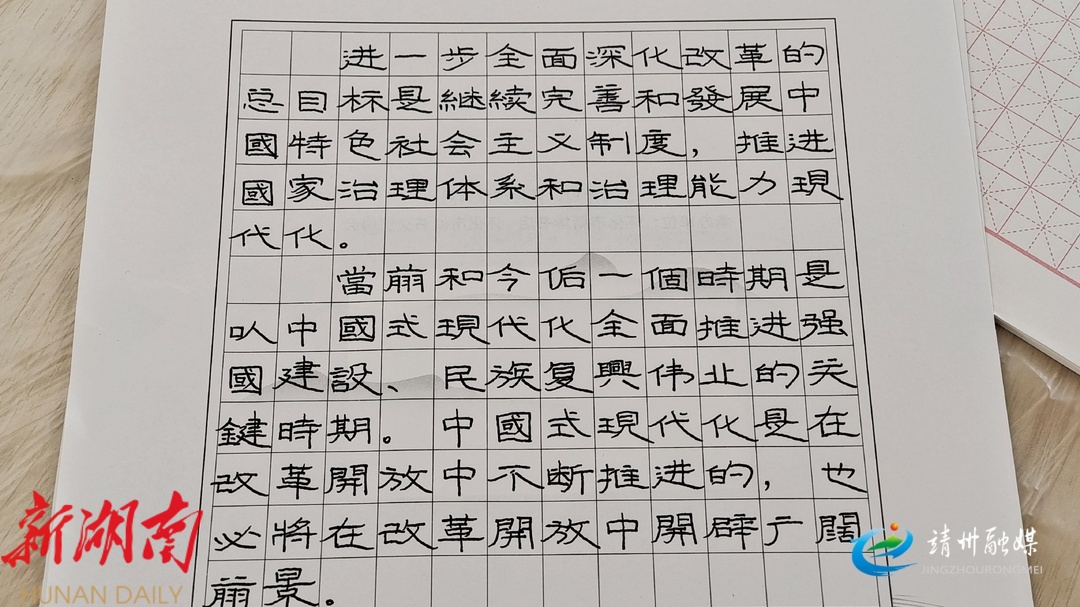 进一步全面深化改革的
总目标是継续完善和發展中
國特色社会主义制度，推进
國家治理体系和治理能力現
代化。
當前和今后一個時期是
以中國式現代化全面推进强
國建設、民族复興伟业的关
鍵時期。中國式現代化是在
改革開放中不断推进的，也
必將在改革開放中開辟广闊
前景。
新湖南
HUNAN DAILY
靖州融媒
JINGZHOURONGMEI